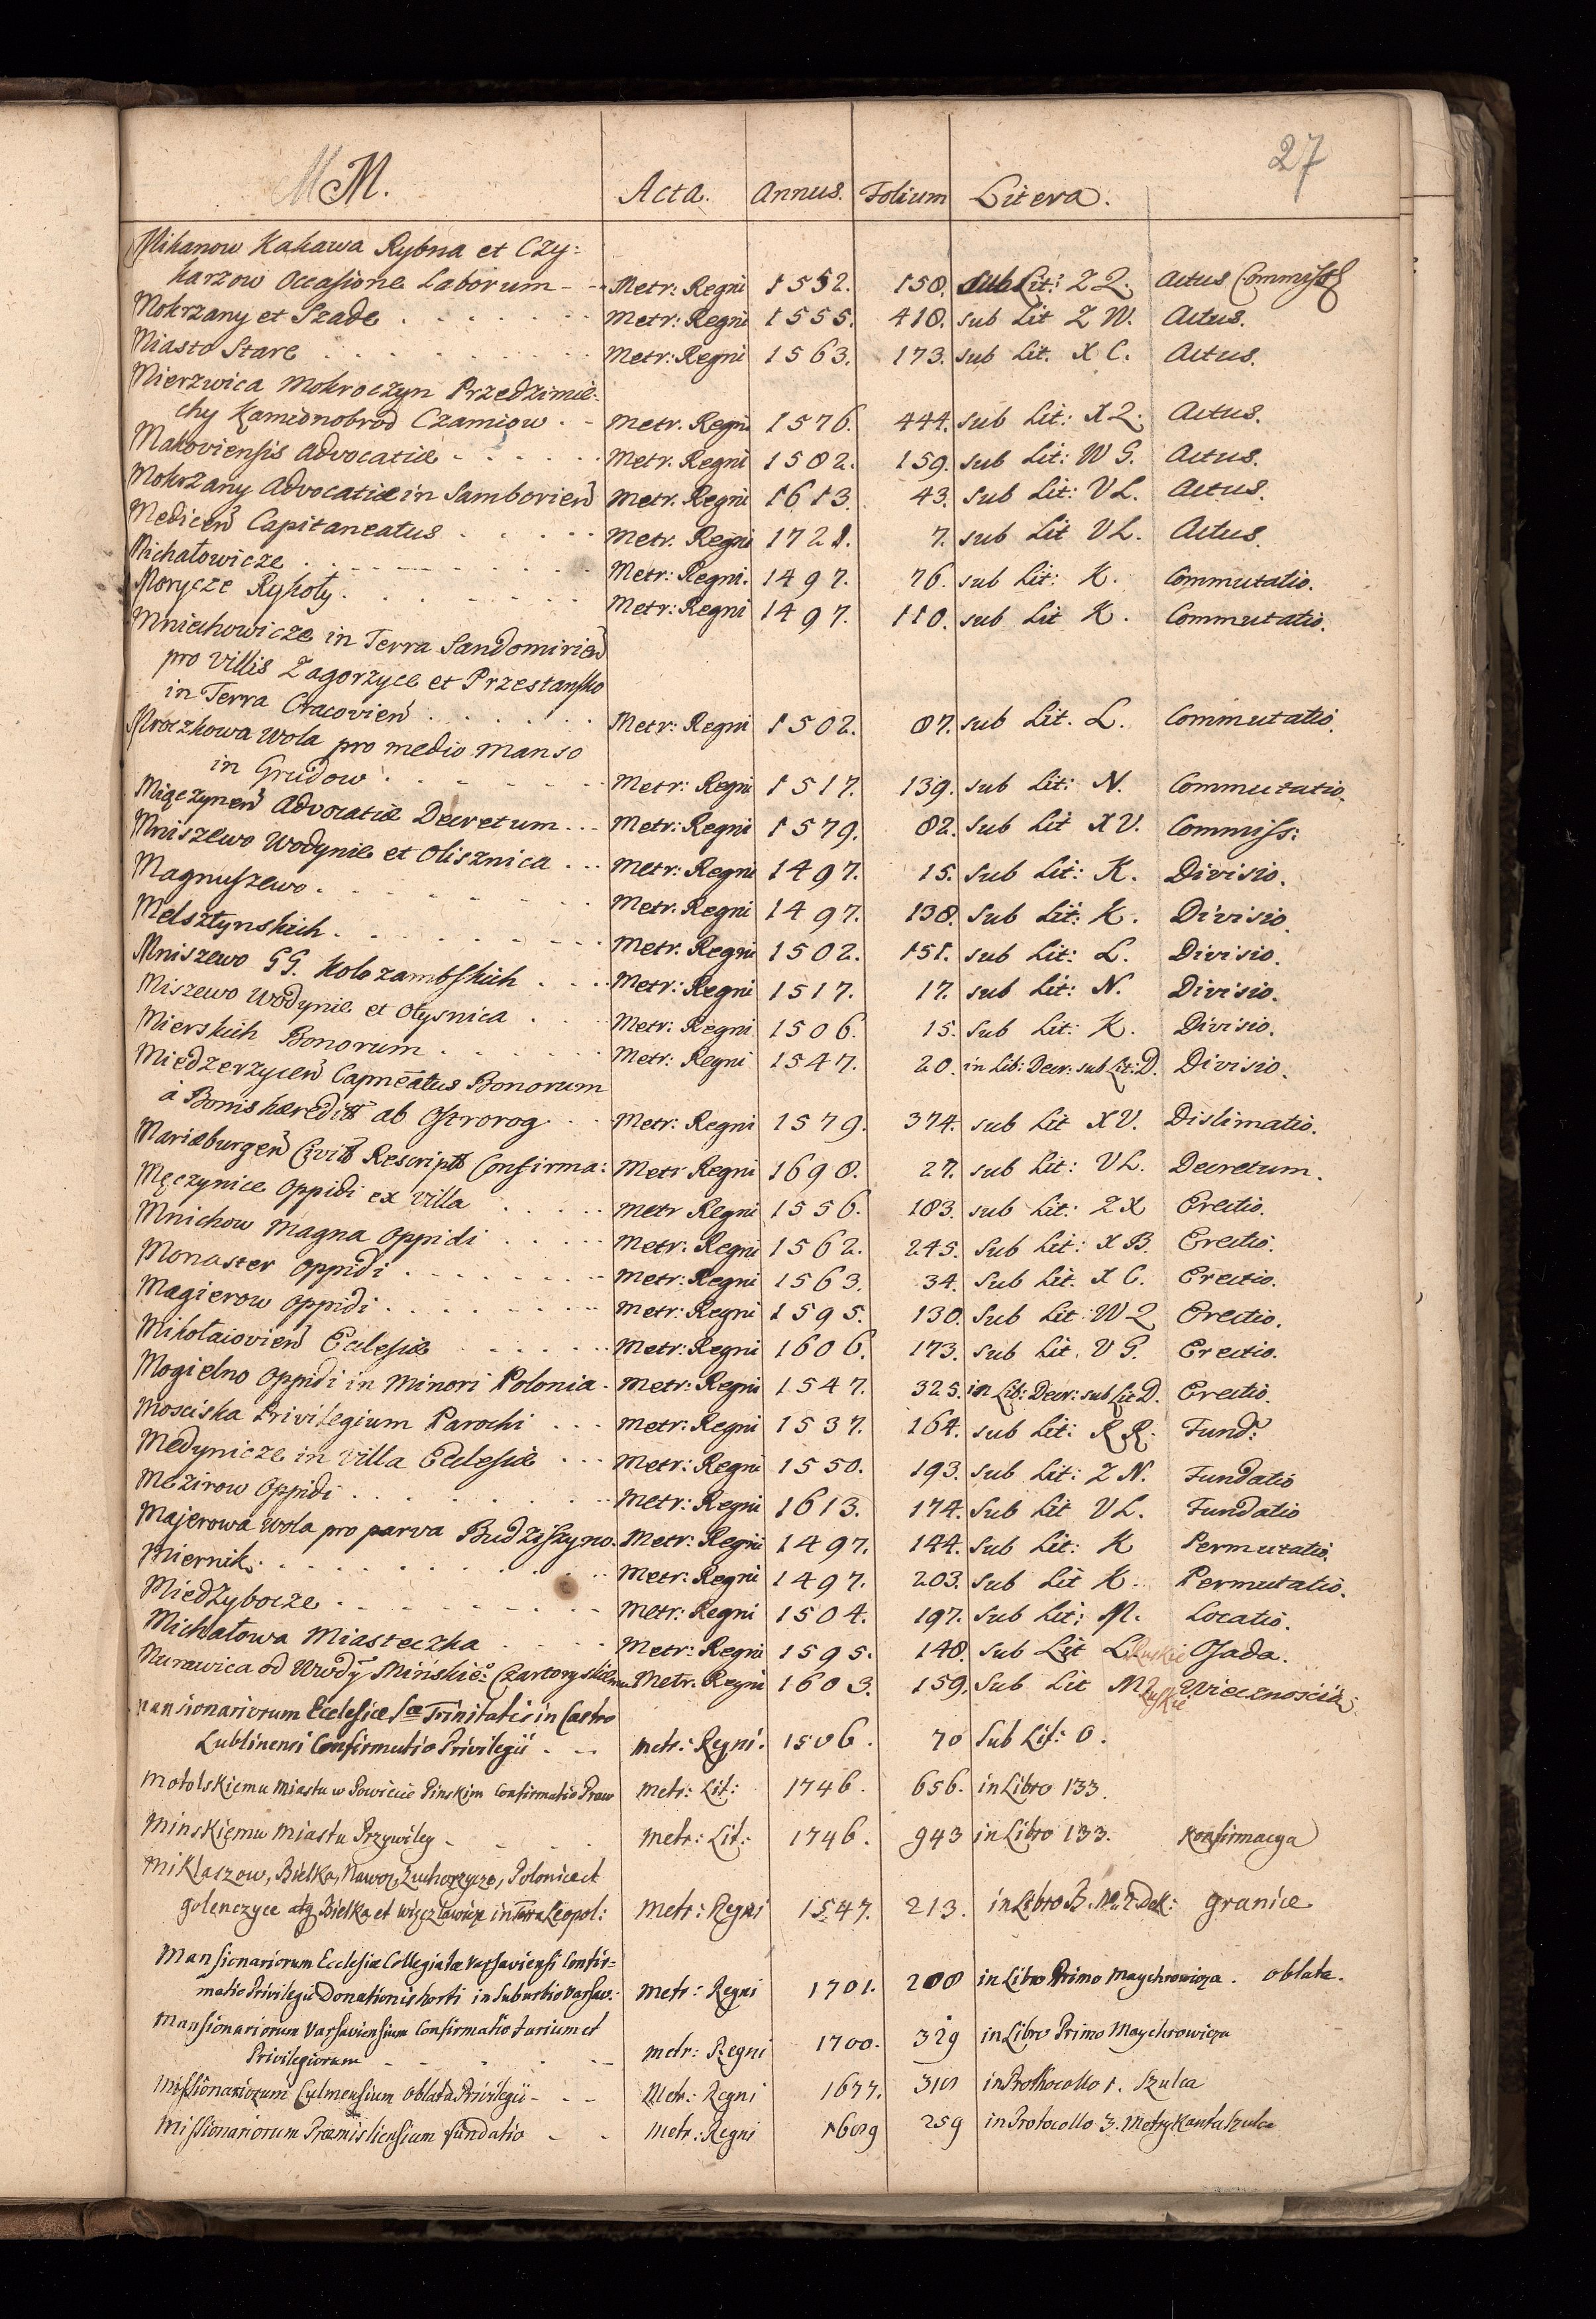 27
M M. Acta. Annus. Folium Litera.
Mikanow Kakawa Rybna et Czy:
karzow Occasione Laborum - - Metr: Regni 1552. 158. sub Lit: Z Q. Actus Commiss
Mokrzany et Szade . . . . . . Metr: Regni 1555. 418. sub Lit Z W. Actus.
Miasto Stare . . . . . . . . Metr: Regni 1563. 173. sub Lit. X C. Actus.
Mierzwica Mokroczyn Przedzimie-
chy Kamionobrod Czamiow . - Metr. Regni 1576. 444. sub Lit: X Q. Actus.
Makoviensis Advocatiæ - - . . . Metr. Regni 1582. 159. sub Lit: W G. Actus.
Mokrzany Advocatiæ in Samborien Metr. Regni 1613. 43. sub Lit: V L. Actus.
Medicen Capitaneatus . . . . . Metr. Regni 1721. 7. sub Lit V L. Actus.
Michałowicze . . . . . . . . Metr: Regni. 1497. 76. sub Lit: K. Commutatio.
Morycze Rykoły . . . . . . . Metr: Regni 1497. 110. sub Lit K. Commutatio.
Mniechowicze in Terra Sandomirien
pro Villis Zagorzyce et Przestansko
in Terra Cracovien . . . . . . Metr: Regni 1502. 87. sub Lit. L. Commutatio.
Mroczkowa Wola pro medio manso
in Grudow . . . . . . Metr: Regni 1517. 139. sub Lit: N. Commutatio.
Miączynen Advocatiæ Decretum . . - Metr: Regni 1579. 82. sub Lit X V. Commiss:
Mniszewo Wodynie et Olisznica . . . Metr: Regni 1497. 15. sub Lit: K. Divisio.
Magnuszewo . . . . . . . . Metr. Regni 1497. 138. sub Lit: K. Divisio.
Melsztynskich . . . . . . . . Metr. Regni 1502. 151. sub Lit: L. Divisio.
Mniszewo GG. Kolozambskich . . . . Metr: Regni 1517. 17. sub Lit: N. Divisio.
Miszewo Wodynie et Olysnica . . . . Metr: Regni 1506. 15. sub Lit: K. Divisio.
Mierskich Bonorum . . . . . . . Metr: Regni 1547. 20. in Lib: Decr: sub Lit: D. Divisio.
Miedzerzycen Capneatus Bonorum
à Bonis hæredit ab Ostrorog . . . Metr: Regni 1579. 374. sub Lit X V. Dislimatio.
Mariæburgen Civit Rescript Confirma: Metr Regni 1698. 27. sub Lit: V L. Decretum.
Męczynice Oppidi ex villa . . . . . Metr Regni 1556. 183. sub Lit: Z X Erectio.
Mnichow Magna Oppidi . . . . . Metr: Regni 1562. 245. sub Lit: X B. Erectio.
Monaster Oppidi . . . . . . . . Metr: Regni 1563. 34. sub Lit. X C. Erectio.
Magierow Oppidi . . . . . . . Metr: Regni 1595. 130. sub Lit W Q Erectio.
Mikołaiovien Eclesiæ . . . . . . Metr: Regni 1606. 173. sub Lit. V G. Erectio.
Mogielno Oppidi in Minori Polonia . Metr: Regni 1547. 325. in Lib: Decr: sub Lit D. Erectio.
Mosciska Privilegium Parochi . . . Metr: Regni 1537. 164. sub Lit: R R. Fund:
Medynicze in Villa Eclesiæ . . . Metr: Regni 1550. 193. sub Lit: Z N. Fundatio
Mezirow Oppidi . . . . . . . . Metr: Regni 1613. 174. sub Lit V L. Fundatio
Majerowa Wola pro parva Budziszyno. Metr: Regni 1497. 144. sub Lit: K Permutatio.
Miernik . . . . . . . . . . Metr: Regni 1497. 203. sub Lit K. Permutatio.
Miedzybocze . . . . . . . . Metr: Regni 1504. 197. sub Lit: M. Locatio.
Michałowa Miasteczka . . . . . Metr: Regni 1595. 148. sub Lit L Ruskie Osada.
Murawica od Urody Mińskie Czartoryskiemu Metr. Regni 1603. 159. sub Lit M Ruskie Wiecznoscią
Mansionariorum Ecclesiæ Sæ Trinitatis in Castro
Lublinensi Confirmatio Privilegii - - Metr: Regni. 1506. 70 Sub Lit: O.
Motolskiemu Miastu w Powiecie Pinskim Confirmatio Praw Metr: Lit: 1746. 656. in Libro 133.
Minskiemu Miastu Przywiley - - - . Metr: Lit: 1746. 943 in Libro 133. Konfirmacya
Miklaszow, Bielka, Nawor, Zuchorzyce, Polonice et
golenczyce atq Bielka et Więczławice in Terra Leopol: Metr: Regni 1547. 213. in Libro B. granice
Mansionariorum Ecclesiæ Collegiatæ Varsaviensi Confir=
matio Privilegii Donationis horti in Suburbio Varsav: Metr: Regni 1701. 208 in Libro Primo Maychrowicza. oblata.
Mansionariorum Varsaviensium Confirmatio Jurium et
Privilegiorum - - - - - - Metr: Regni 1700. 329 in Libro Primo Maychrowicza
Missionariorum Culmensium Oblata Privilegii - - - Metr: Regni 1677. 318 in Prothocollo 1. Szulca
Missionariorum Præmisliensium fundatio - - Metr: Regni 1689 259 in Protocollo 3. Metrykanta Szulca